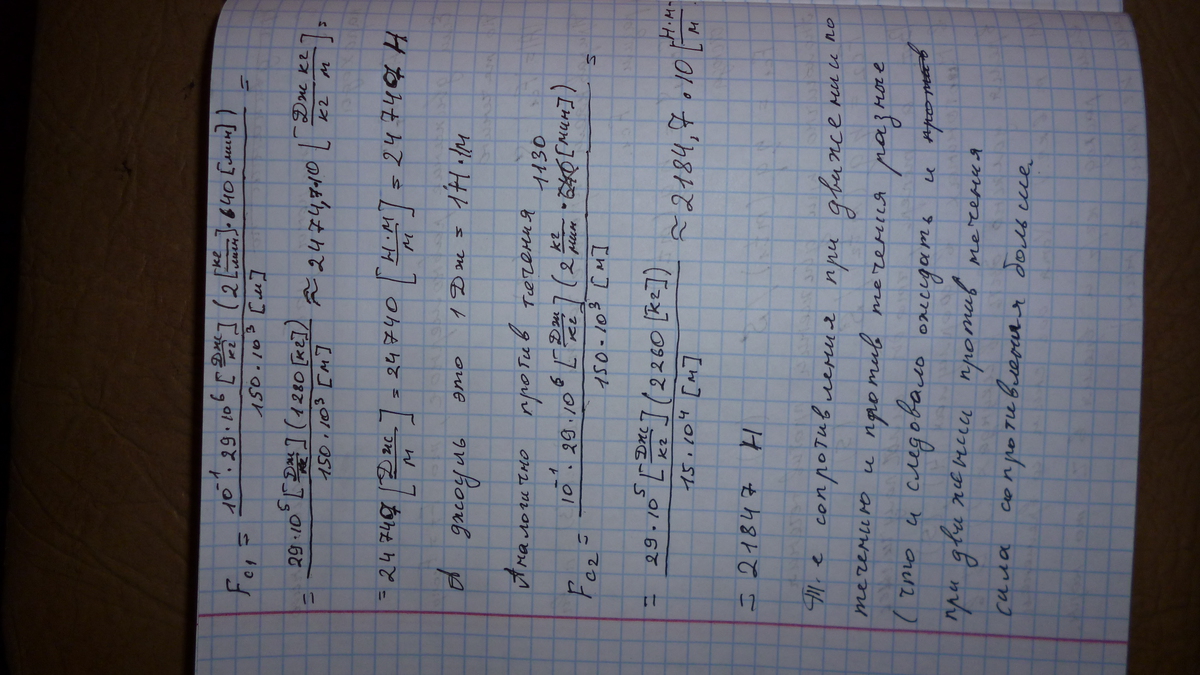 F_c1 = (10^-1 · 29·10^6 [Дж/кг] (2 [кг/мин]·640 [мин])) / (150·10^3 [м]) =
= (29·10^5 [Дж/кг] (1280 [кг])) / (150·10^3 [м]) ≈ 2474,7·10 [Дж кг / кг м] =
= 24740 [Дж/м] = 24740 [Н·м/м] = 24740 Н
А джоуль это 1 Дж = 1Н·1м
Аналогично против течения
1130
F_c2 = (10^-1 · 29·10^6 [Дж/кг] (2 кг/мин · [мин])) / (150·10^3 [м]) =
= (29·10^5 [Дж/кг] (2260 [кг])) / (15·10^4 [м]) ≈ 2184,7·10 [Н·м/м]
= 21847 Н
Т.е сопротивления при движении по
течению и против течения разные
(что и следовало ожидать и против
при движении против течения
сила сопротивления больше.